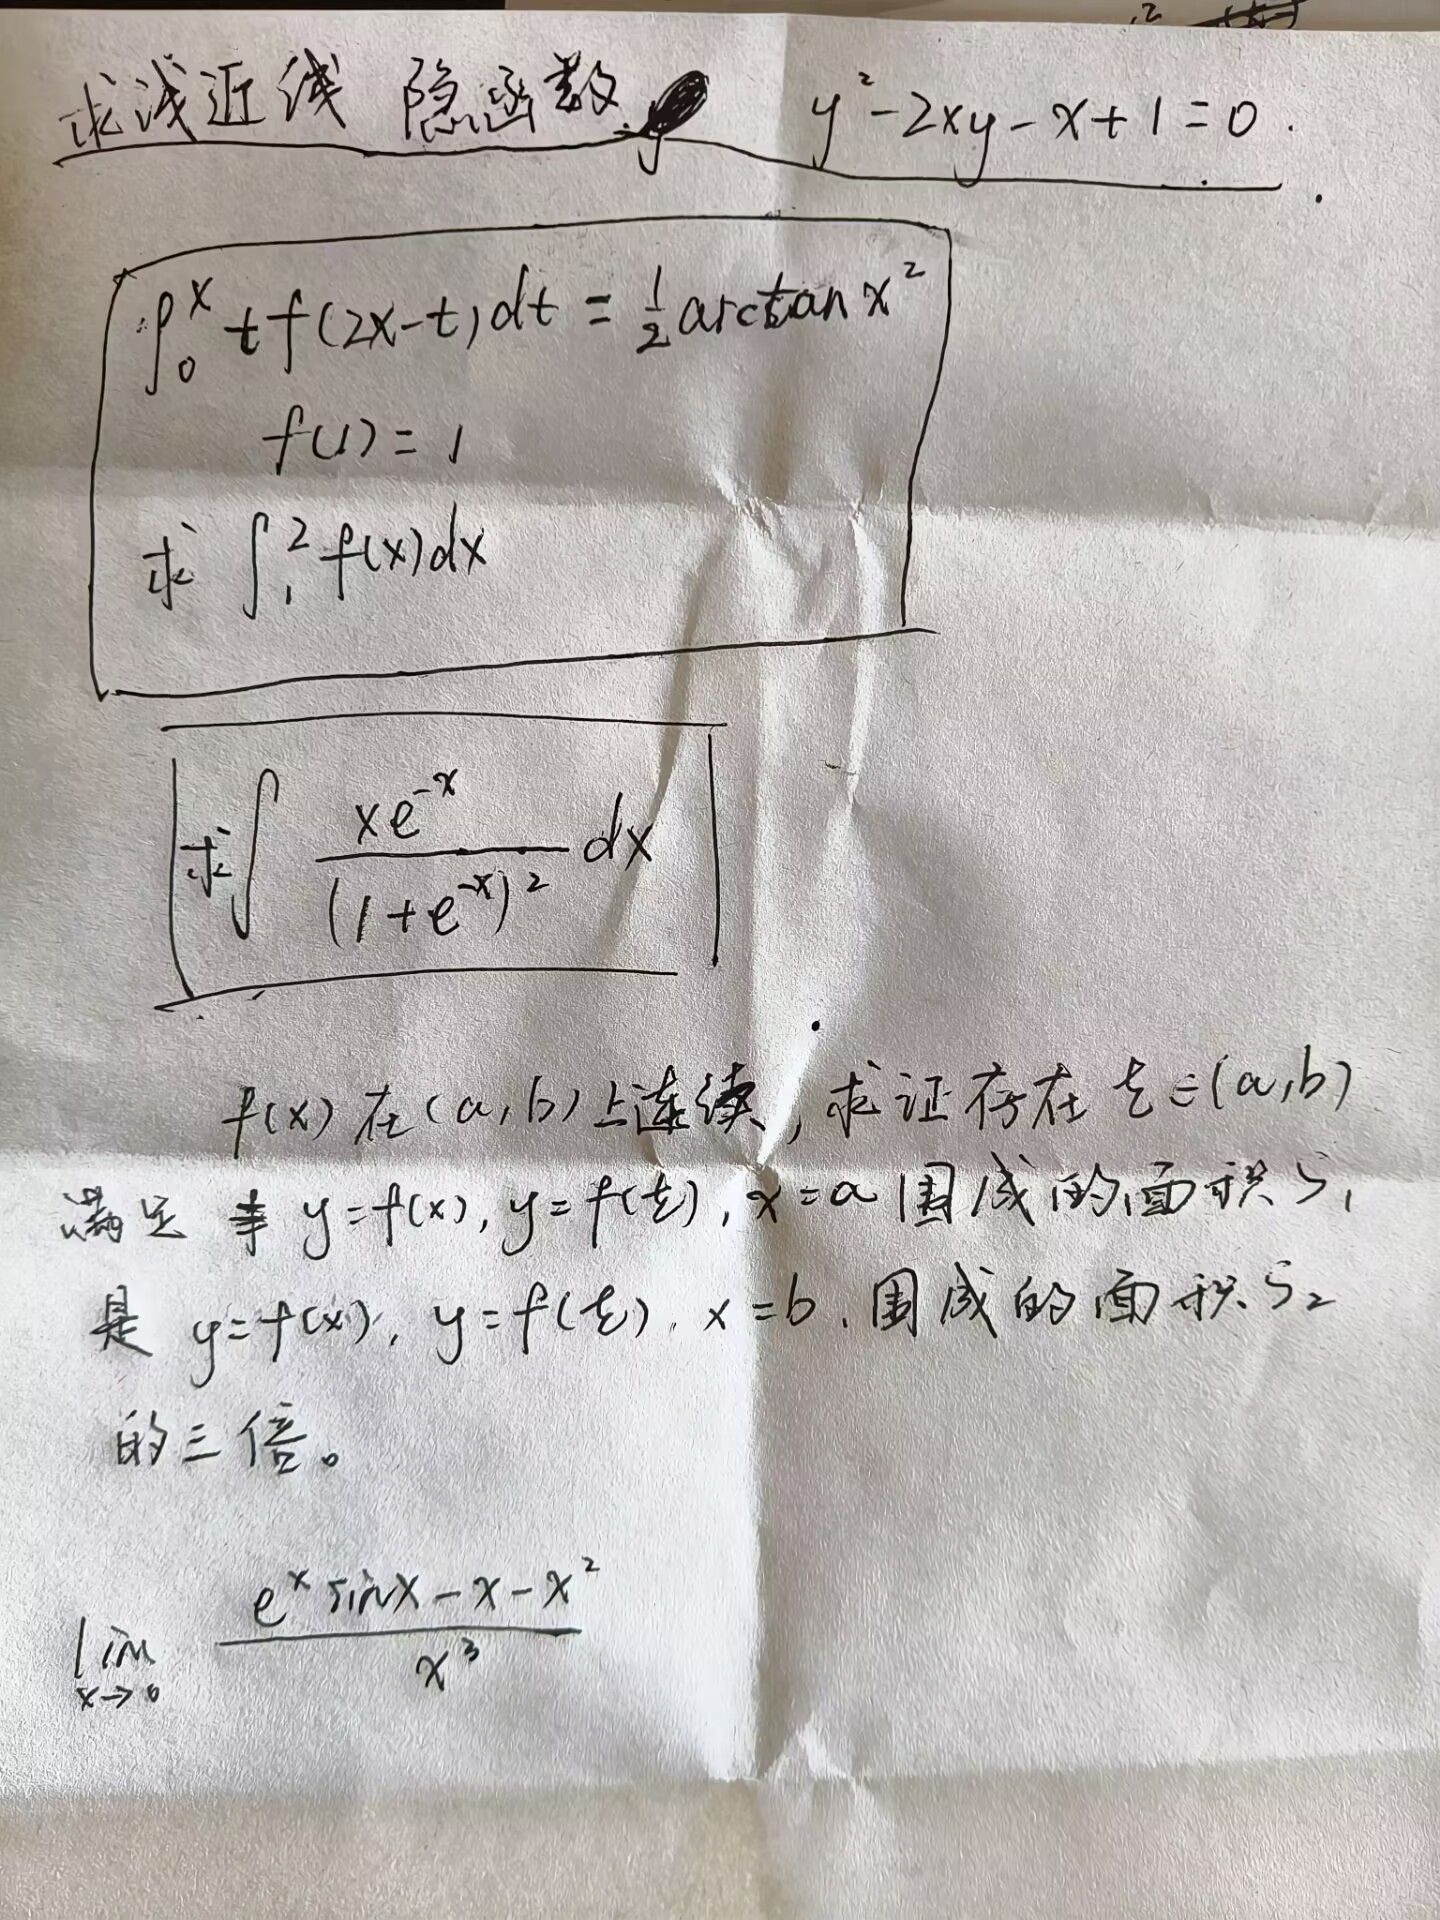 求浅近线 隐函数 y²-2xy-x+1=0.
∫₀ˣ tf(2x-t)dt = ½ arctan x²
f(1)=1
求 ∫₁² f(x)dx
求∫ xe⁻ˣ/(1+e⁻ˣ)² dx
f(x)在(a,b)上连续,求证存在ξ=(a,b)
满足 y=f(x), y=f(ξ), x=a围成的面积S₁
是 y=f(x), y=f(ξ), x=b.围成的面积S₂
的三倍。
lim x→0 (eˣsinx-x-x²)/x³